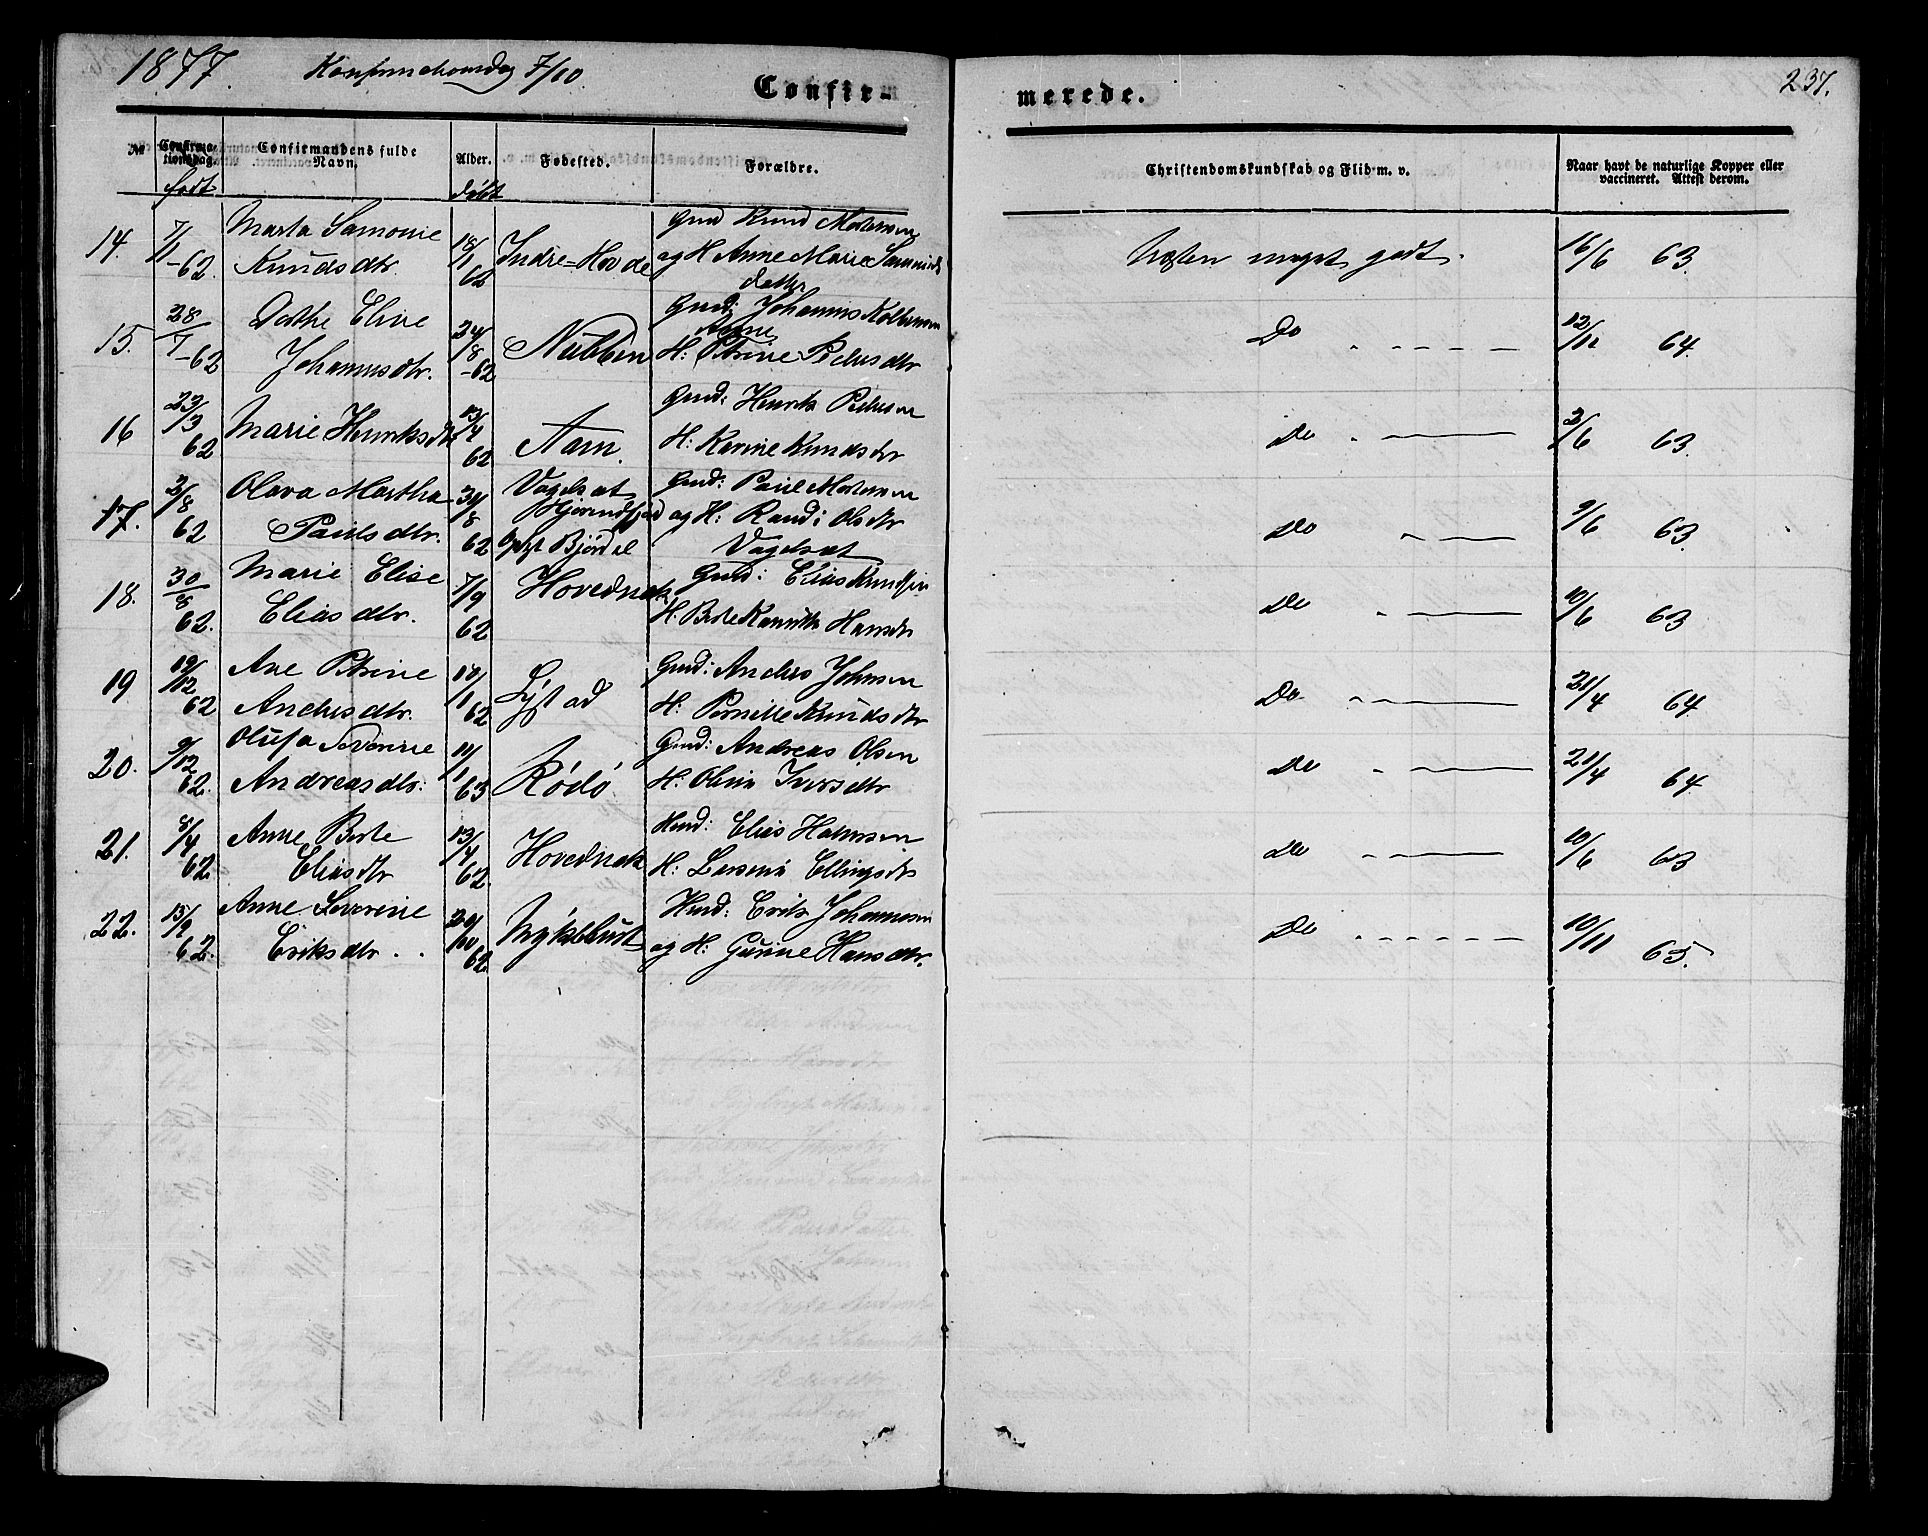 1877. Konfirmationsdag 7/10.
237.
Confir-
merede.
№
Confirmationsdag.
født
Confirmandens fulde Navn.
Alder.
døbt
Fødested.
Forældre.
Christendomskundskab og Flid m. v.
Naar havt de naturlige Kopper eller
vaccineret. Attest derom.
14. 7/11-62. Marta Samonie Knudsdtr. 18/1 62 Indre-Hovde Gmd Knud Mortensen
og H Anne Marie
datter
Næsten meget godt. 16/6 63.
15. 28/7-62 Dorthe Eline Johannesdtr. 24/8-62 Nubben Gmd: Johannes
Anne
H: Petrine Pedersdtr
Do 12/11 64.
16 23/3 62 Marie Henriksdtr 13/4 62 Aam. Gmd: Henrik Pedersen
H: Karine Knudsdtr
Do 3/6 63.
17. 3/8 62 Olava Martha Paulsdtr. 31/8 62 Vagelsæt
Hjørendfjord
Opht Bjørdal
Gmd: Paul Mortensen
og H: Randi Olsdtr
Vagelsæt
Do 9/6 63.
18. 30/8 62. Marie Elise Eliasdtr. 7/9 62 Hovednak Gmd: Elias Knudsen
H: Berte Hansdtr
Do 10/6 63
19 19/12 62 Ane Petrine Andersdtr. 10/1 62 Lystad Gmd: Anders Johnsen
H: Pernille Knudsdtr
Do 21/4 64.
20. 9/12 62. Olufa Severine Andreasdtr. 11/1 63 Rødø Gmd: Andreas Olsen
H: Olivia Iversdtr
Do 21/4 64.
21. 8/4 62. Anne Berte Eliasdtr 13/4 62. Hovednak Hmd: Elias
H: Ellingsdtr
Do 10/6 63
22. 15/9 62. Anne Severine Eriksdtr.. 20/10 62. Myklebust Hmd: Erik Johannesen
og H: Gurine Hansdtr.
Do 10/11 65.